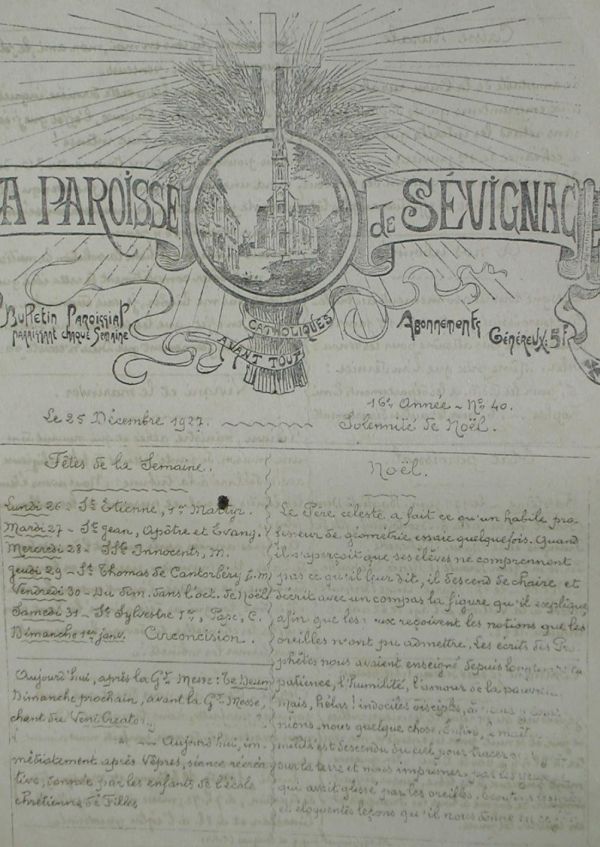 A PAROISSE de SÉVIGNAC
Bulletin Paroissial
paraissant chaque Semaine
CATHOLIQUES
AVANT TOUT
Abonnements
Généreux: 5f
Le 25 Décembre 1927.
16e Année - No 40.
Solennité de Noël.
Fêtes de la Semaine.
Lundi 26 - St Etienne, 1er Martyr.
Mardi 27 - St Jean, Apôtre et Evang.
Mercredi 28 - SSts Innocents, M.
Jeudi 29 - St Thomas de Cantorbéry E. m
Vendredi 30 - Du dim. dans l'oct. de Noël
Samedi 31 - St Sylvestre 1er, Pape, C.
Dimanche 1er janv. Circoncision.
Aujourd'hui, après la Gd. Messe: Te Deum
Dimanche prochain, avant la Gd. Messe,
chant du Veni Creator.
Aujourd'hui, im-
médiatement après Vêpres, séance récréa-
tive, donnée par les enfants de l'école
chrétienne de Filles
Noël.
Le Père céleste a fait ce qu'un habile pro-
fesseur de géométrie essaie quelquefois. Quand
il s'aperçoit que ses élèves ne comprennent
pas ce qu'il leur dit, il descend de chaire et
décrit avec un compas la figure qu'il explique
afin que les yeux reçoivent les notions que les
oreilles n'ont pu admettre. Les écrits des Pro-
phètes nous avaient enseigné depuis longtemps la
patience, l'humilité, l'amour de la pauvreté
Mais, hélas! indociles disciples,
nions-nous quelque chose. Enfin, le maître
est descendu du ciel pour tracer
sur la terre et nous imprimer par les yeux
qui avait glissé par les oreilles. Ecoutons
et éloquentes leçons qu'il nous donne